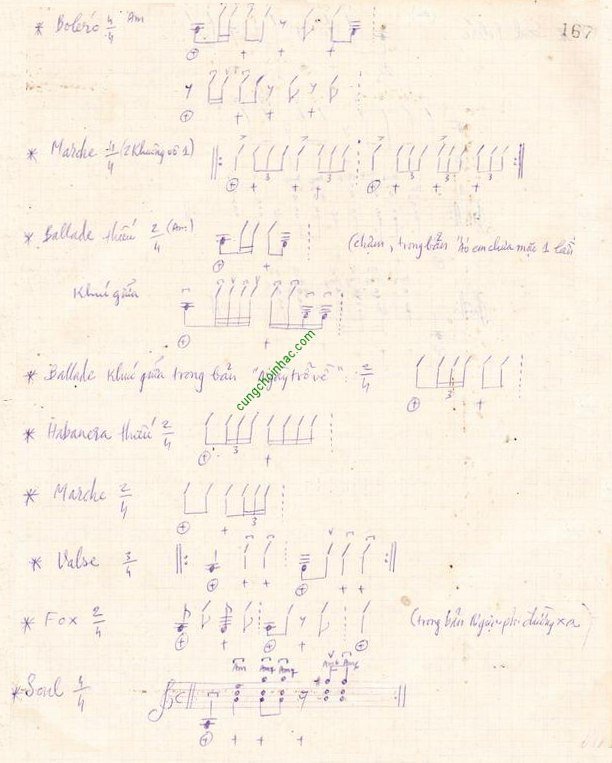 167
* Boléro 4/4 Am
* Marche 4/4 (2 khuông số 1)
* Ballade thiếu 2/4 (Am)
(chậm, trong bản "Áo em chưa mặc 1 lần
Khúc giữa
* Ballade khúc giữa trong bản "Ngày trở về" 2/4
cungchoinhac.com
* Habanera thiếu 2/4
3
* Marche 2/4
3
* Valse 3/4
* Fox 2/4
(trong bản Ngàn phi đường xa)
* Soul 4/4
Am Am7 Am7 Am6 Am7